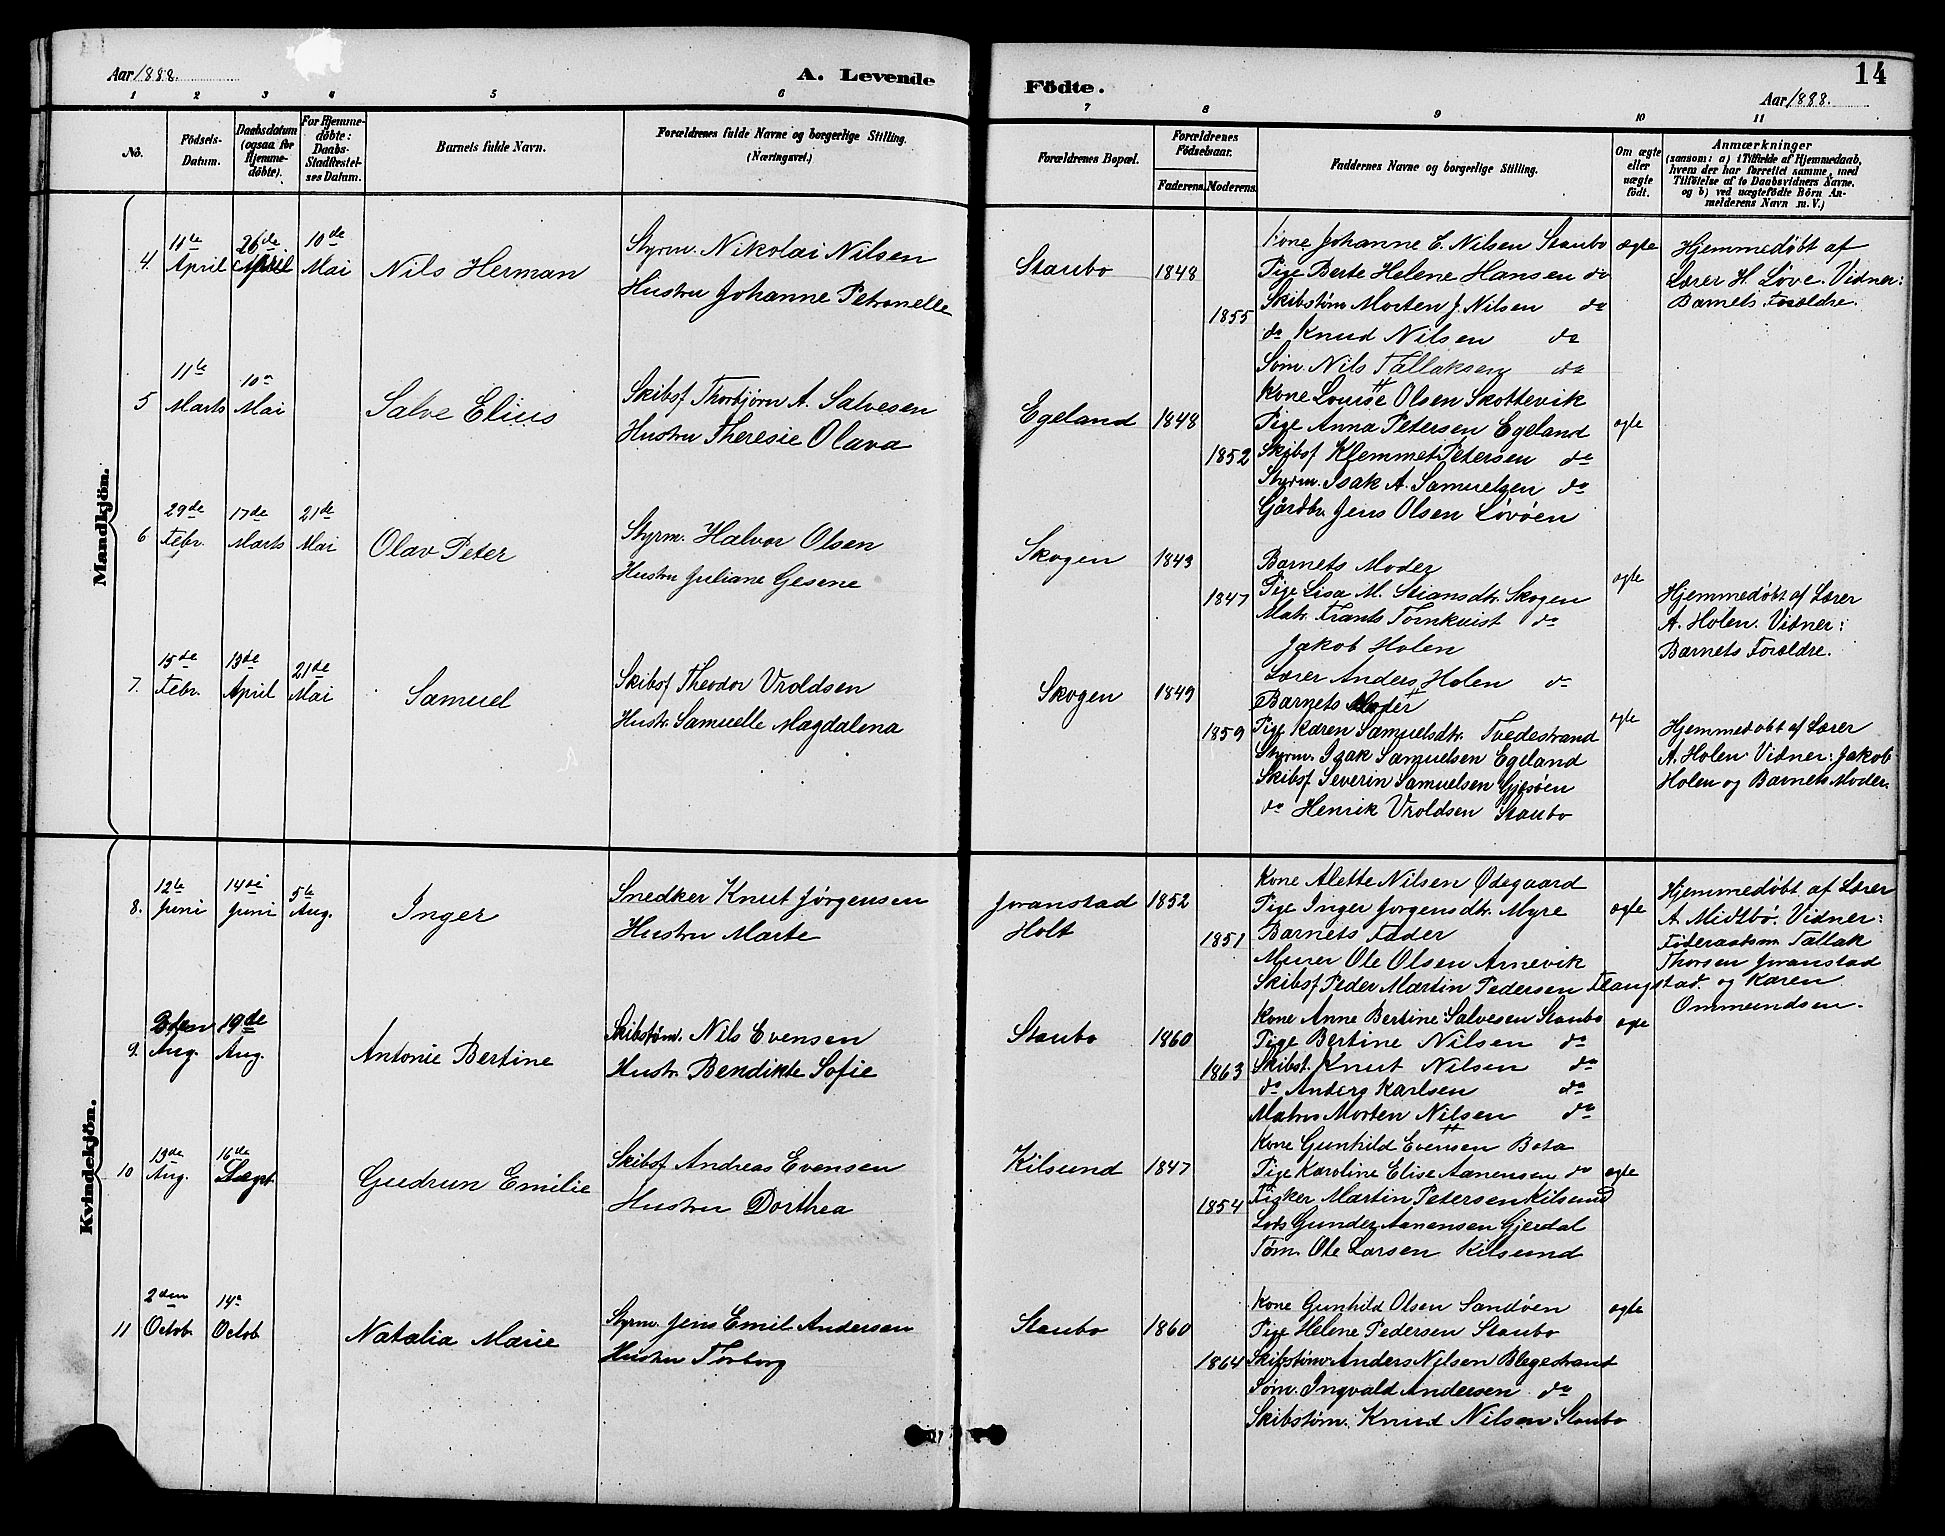 Aar 1888.
A. Levende
Födte.
14
Aar 1888.
1 2 3 4 5 6 7 8 9 10 11
No.
Födsels-
Datum.
Daabsdatum
(ogsaa for
Hjemme-
døbte).
For Hjemme-
døbte:
Daabs-
Stadfæstel-
ses Datum.
Barnets fulde Navn.
Forældrenes fulde Navne og borgerlige Stilling.
(Næringsvei.)
Forældrenes Bopæl.
Forældrenes
Födselsaar.
Faderens.
Moderens.
Faddernes Navne og borgerlige Stilling.
Om ægte
eller
uægte
födt.
Anmærkninger
(saasom: a) i Tilfælde af Hjemmedaab,
hvem der har forrettet samme, med
Tilføielse af to Daabsvidners Navne.
og b) ved uægtefödte Börn An-
melderens Navn m. V.)
Mandkjön.
4.
11te
April
26de
April
10de
Mai
Nils Herman
Styrm. Nikolai Nilsen
Hustru Johanne Petronelle
Staubo
1848
1855
Kone Johanne E. Nilsen Staubo
Pige Berte Helene Hansen do
Skibstøm Morten J. Nilsen do
do Knud Nilsen do
Søm. Nils Tallaksen do
ægte
Hjemmedøbt af
Lærer H. Løve. Vidner:
Barnets Forældre.
5
11te
Marts
10de
Mai
Salve Elius
Skibsf Thorbjørn A. Salvesen
Hustru Theresie Olava
Egeland
1848
1852
Kone Louise Olsen Skottevik
Pige Anna Petersen Egeland
Skibsf Klemmet Petersen do
Styrm. Isak A. Samuelsen do
Gårdbr Jens Olsen Løvøen
ægte
6
29de
Febr.
17de
Marts
21de
Mai
Olav Peter
Styrm. Halvor Olsen
Hustru Juliane Gesene
Skogen
1843
1847
Barnets Moder
Pige Lisa M. Stiansdtr. Skogen
Matr. Frants Tørnkvist do
Jakob Holen
Lærer Anders Holen do
ægte
Hjemmedøbt af Lærer
A. Holen. Vidner:
Barnets Forældre.
7.
15de
Febr.
13de
April
21de
Mai
Samuel
Skibsf Theodor Vroldsen
Hustr. Samuelle Magdalena
Skogen
1849
1859
Barnets Moder
Pige Karen Samuelsdtr. Tvedestrand
Styrm. Isak Samuelsen Egeland
Skibsf Severin Samuelsen Gjesøen
do Henrik Vroldsen Staubo
ægte
Hjemmedøbt af Lærer
A. Holen. Vidner: Jakob
Holen og Barnets Moder.
Kvindekjön.
8.
12te
Juni
14de
Juni
5te
Aug.
Inger
Snedker Knut Jørgensen
Hustru Marte
Joranstad
Holt
1852
1851
Kone Alette Nilsen Ødegaard
Pige Inger Jørgensdtr. Myre
Barnets Fader
Murer Ole Olsen Arnevik
Skibsf Peder Martin Pedersen Flangstad.
ægte
Hjemmedøbt af Lærer
A. Midtbø. Vidner:
Føderaadsm Tallak
Thorsen Joranstad
og Karen
Ommundsen.
9.
3den
Aug.
19de
Aug.
Antonie Bertine
Skibstøm. Nils Evensen
Hustr. Bendikte Sofie
Staubo
1860
1863
Kone Anne Bertine Salvesen Staubo
Pige Bertine Nilsen do
Skibst. Knut Nilsen do
do Anders Karlsen do
Matros Morten Nilsen do
ægte
10
19de
Aug.
16de
Sept.
Gudrun Emilie
Skibsf Andreas Evensen
Hustru Dorthea
Kilsund
1847
1854
Kone Gunhild Evensen Bota
Pige Karoline Elise Aanensen do
Fisker Martin Petersen Kilsund
Lods Gunder Aanensen Gjerdal
Tøm. Ole Larsen Kilsund
ægte
11
2den
Octob.
14de
Octob
Natalia Marie
Styrm. Jens Emil Andersen
Hustru Torborg
Staubo
1860
1864
Kone Gunhild Olsen Sandøen
Pige Helene Pedersen Staubo
Skibstøm. Anders Nilsen Blegestrand
Søm. Ingvald Andersen do
Skibstøm. Knud Nilsen Staubo
ægte